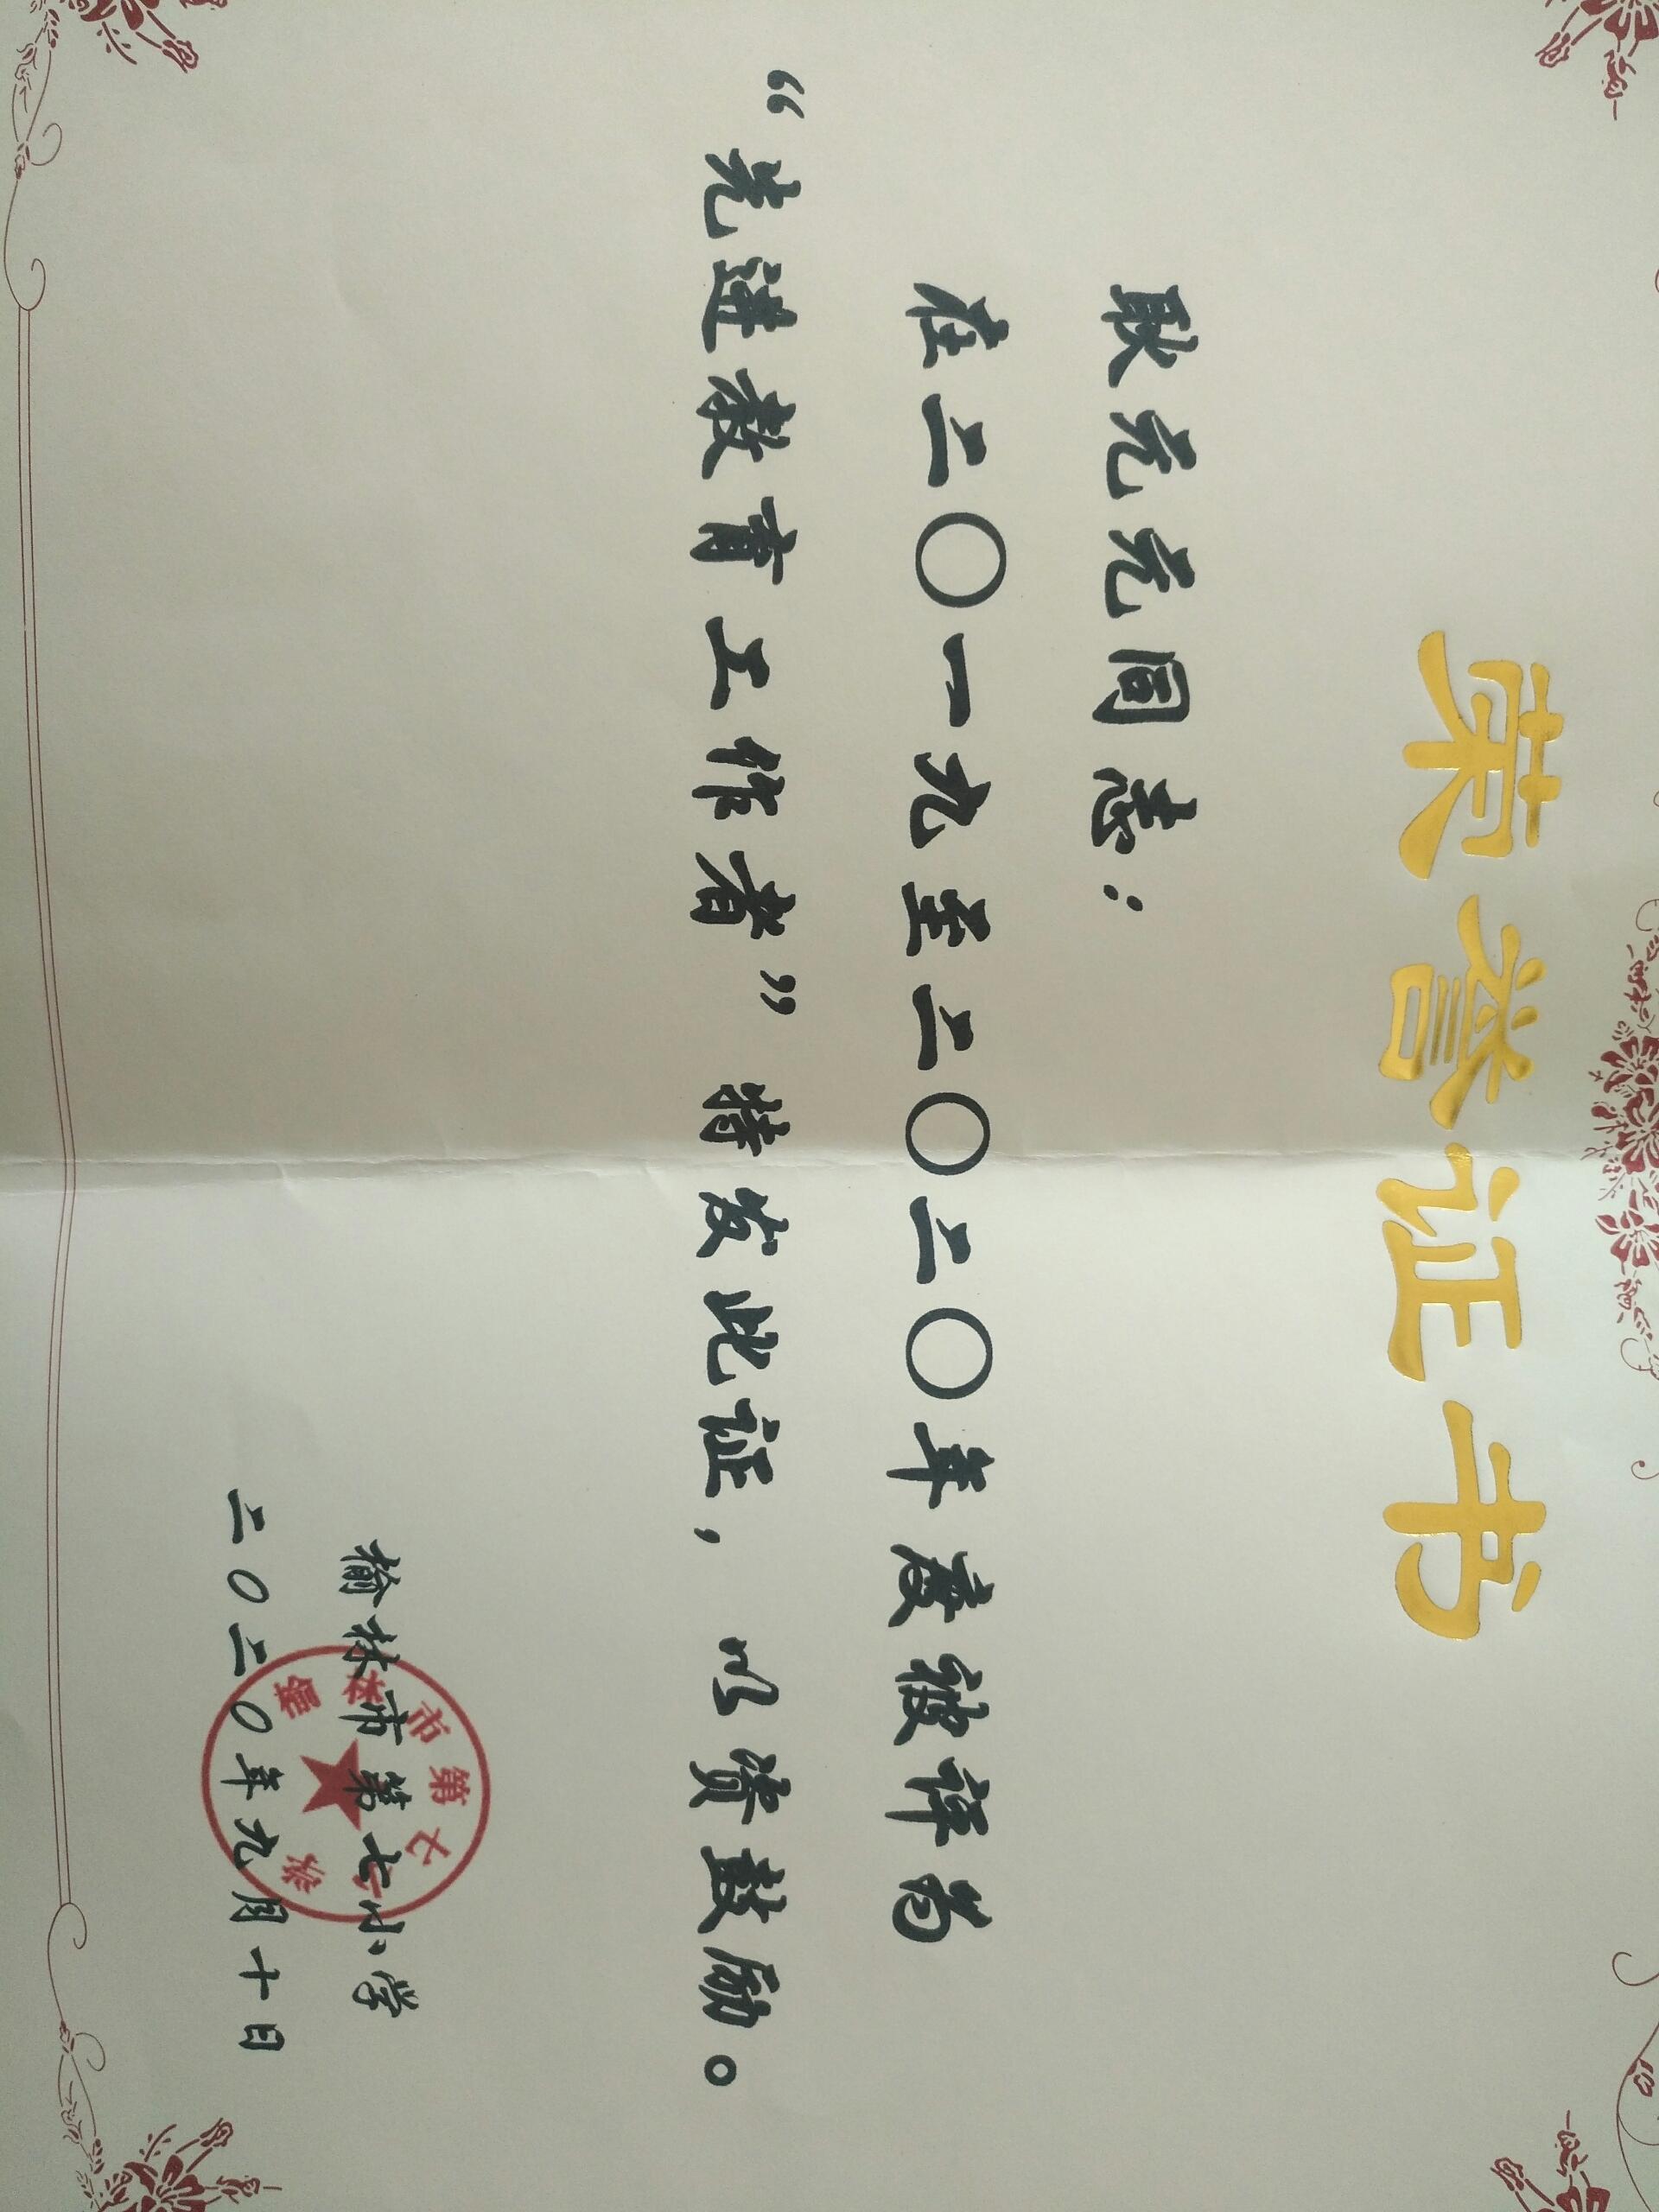 荣誉证书
耿元元同志：
在二〇一九至二〇二〇年度被评为
“先进教育工作者”特发此证，以资鼓励。
榆林市第七小学
二0二0年九月十日
林市第七